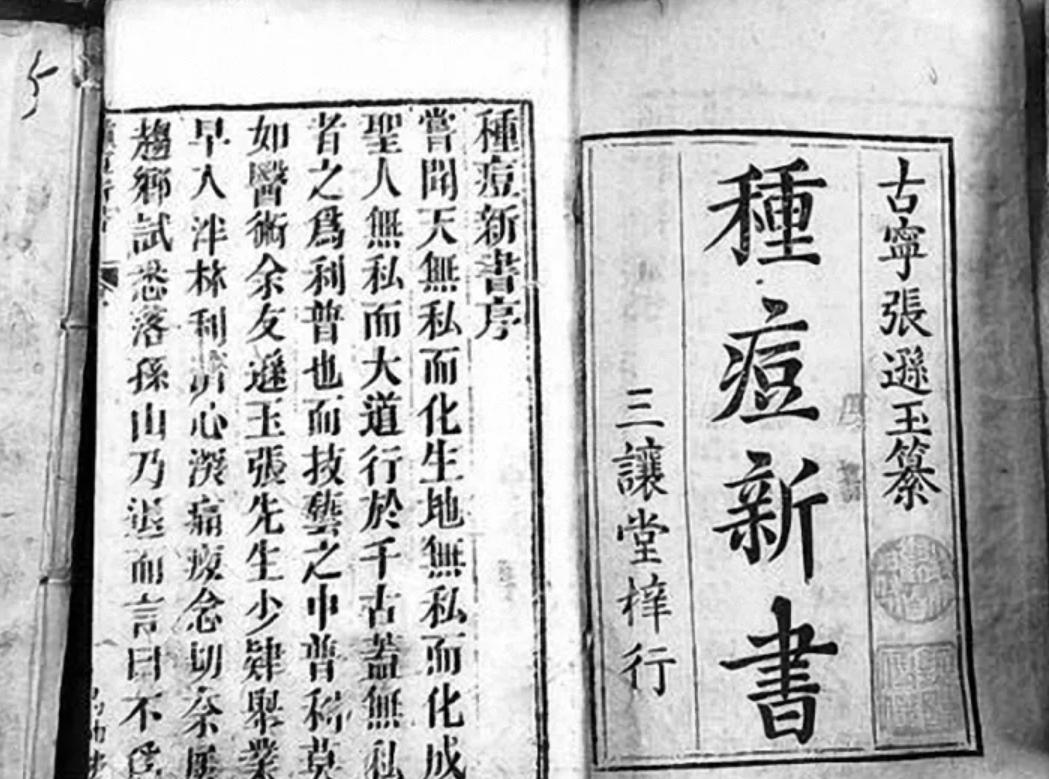 古寧張遜玉纂
種痘新書
三讓堂梓行
種痘新書序
嘗聞天無私而化生地無私而化成
聖人無私而大道行於千古蓋無私
者之爲利普也而技藝之中普利莫
如醫術余友遜玉張先生少肄舉業
早入泮林利濟心深痌瘝念切奈屢
趨鄉試悉落孫山乃退而言曰不爲